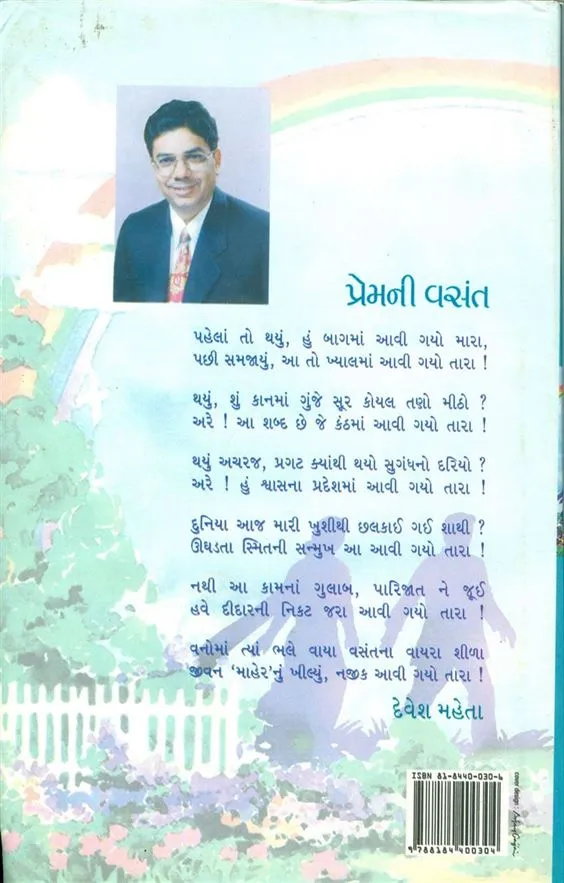 પ્રેમની વસંત
પહેલાં તો થયું, હું બાગમાં આવી ગયો મારા,
પછી સમજાયું, આ તો ખ્યાલમાં આવી ગયો તારા !
થયું, શું કાનમાં ગુંજે સૂર કોયલ તણો મીઠો ?
અરે ! આ શબ્દ છે જે કંઠમાં આવી ગયો તારા !
થયું અચરજ, પ્રગટ ક્યાંથી થયો સુગંધનો દરિયો ?
અરે ! હું શ્વાસના પ્રદેશમાં આવી ગયો તારા !
દુનિયા આજ મારી ખુશીથી છલકાઈ ગઈ શાથી ?
ઊઘડતા સ્મિતની સન્મુખ આ આવી ગયો તારા !
નથી આ કામનાં ગુલાબ, પારિજાત ને જૂઈ
હવે દીદારની નિકટ જરા આવી ગયો તારા !
વનોમાં ત્યાં ભલે વાયા વસંતના વાયરા શીળા
જીવન ‘માહેર’નું ખીલ્યું, નજીક આવી ગયો તારા !
દેવેશ મહેતા
ISBN 81-8440-030-6
9 788184 400304
cover design :